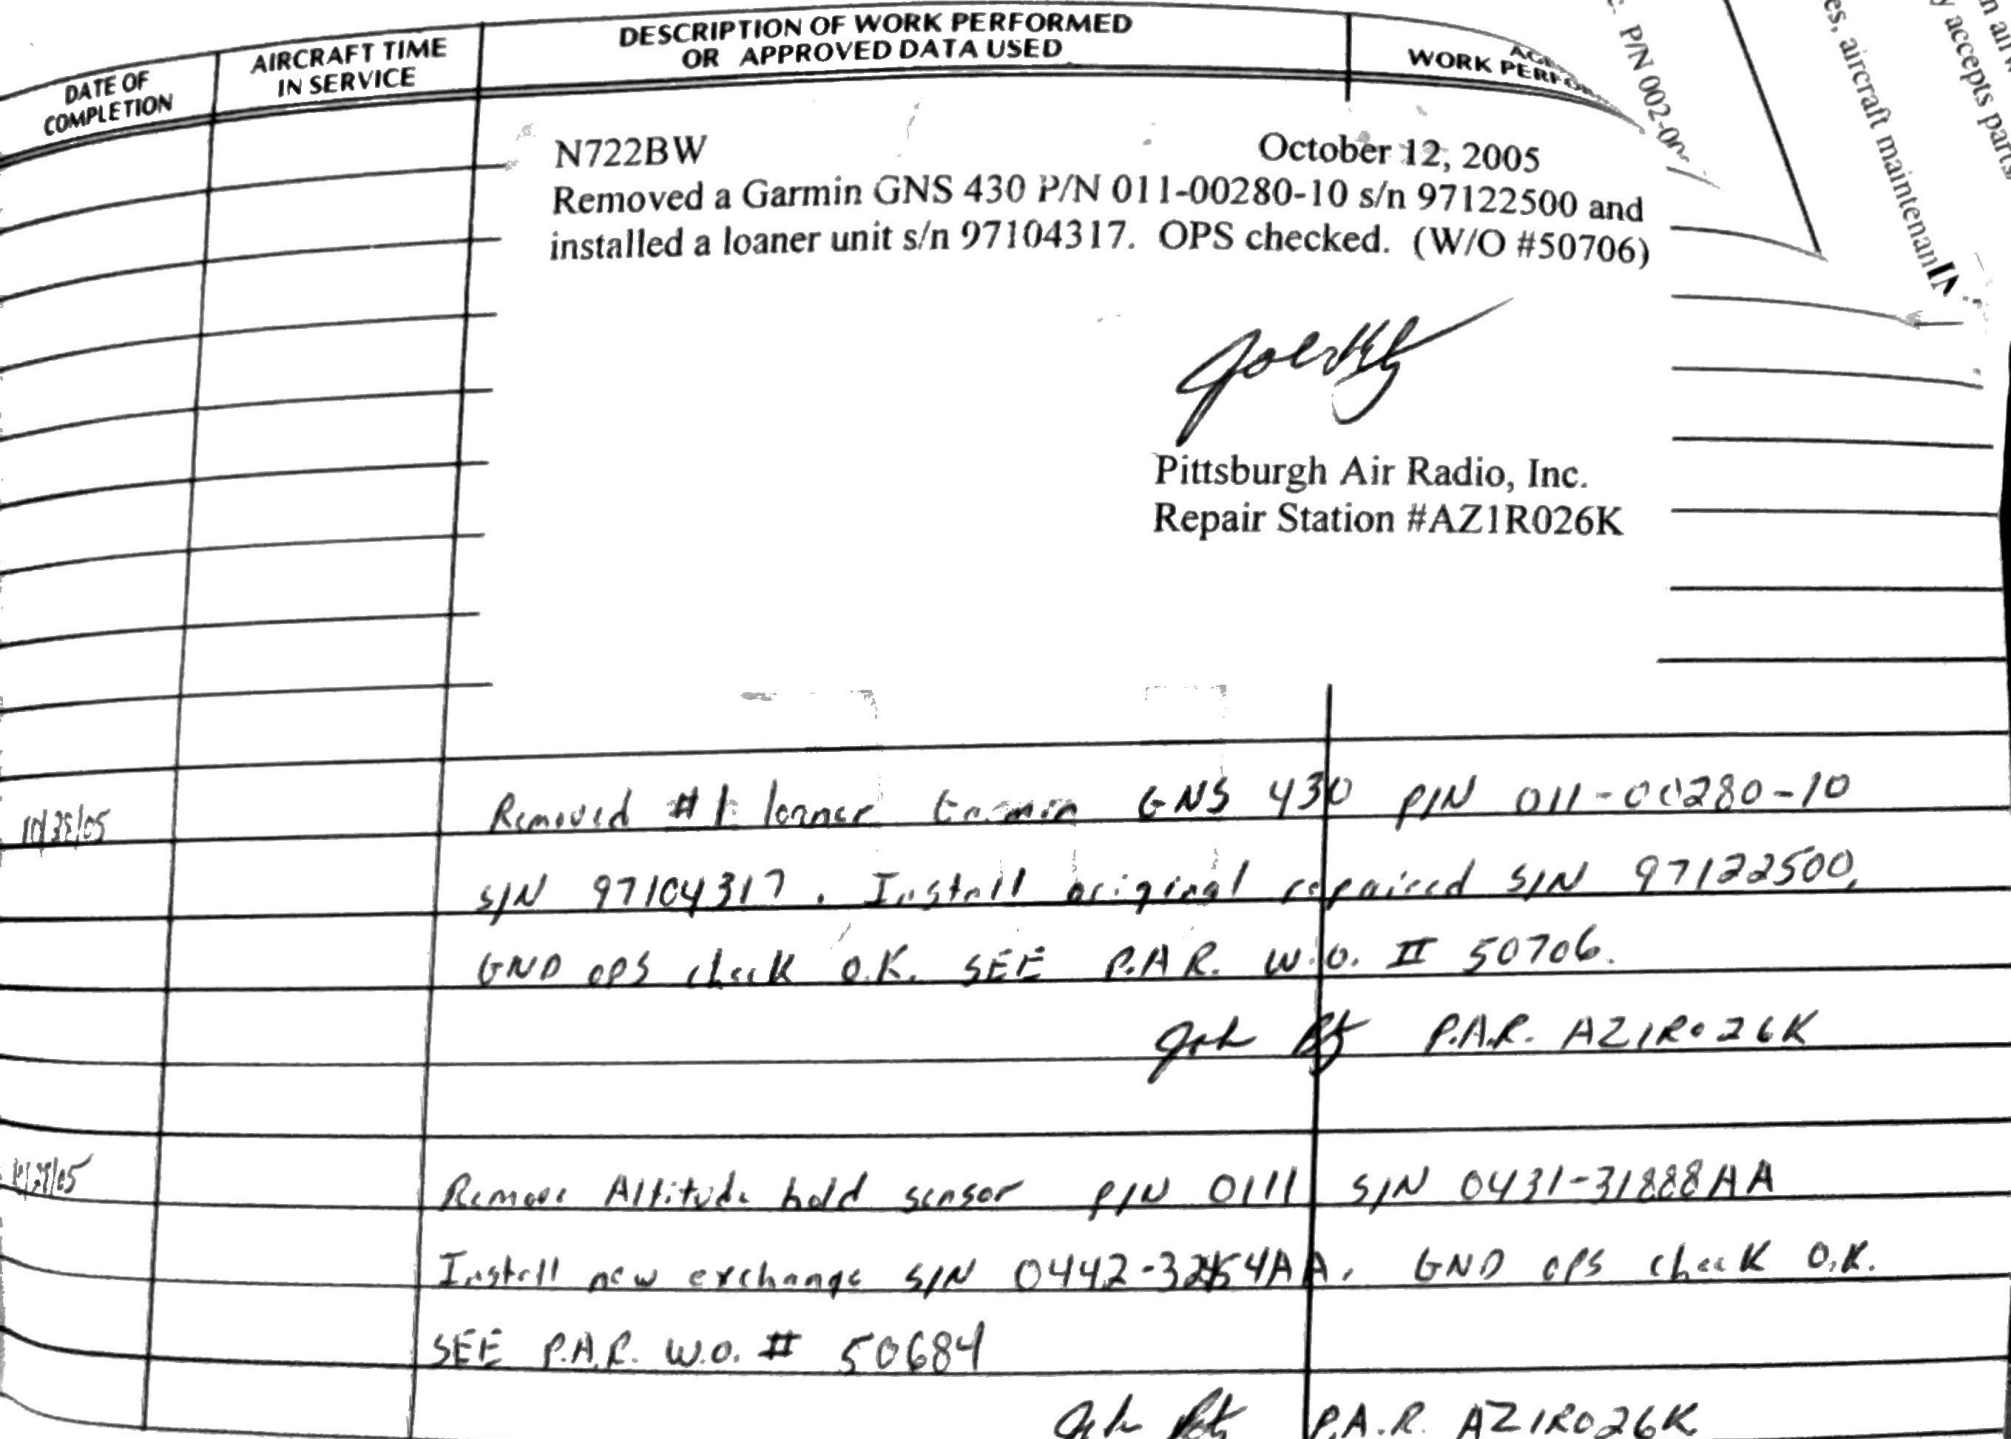 DATE OF
COMPLETION
AIRCRAFT TIME
IN SERVICE
DESCRIPTION OF WORK PERFORMED
OR APPROVED DATA USED
WORK
P/N 002-
es, aircraft
y accepts parts
N722BW October 12, 2005
Removed a Garmin GNS 430 P/N 011-00280-10 s/n 97122500 and
installed a loaner unit s/n 97104317. OPS checked. (W/O #50706)
Pittsburgh Air Radio, Inc.
Repair Station #AZ1R026K
Removed #1 loaner Garmin GNS 430 P/N 011-00280-10
S/N 97104317. Install original repaired S/N 97122500.
GND OPS check O.K. SEE P.A.R. W.O. # 50706.
P.A.R. AZ1R026K
Remove Altitude hold sensor P/N 0111 S/N 0431-31888AA
Install new exchange S/N GND OPS check O.K.
SEE P.A.R. W.O. # 50684
P.A.R. AZ1R026K